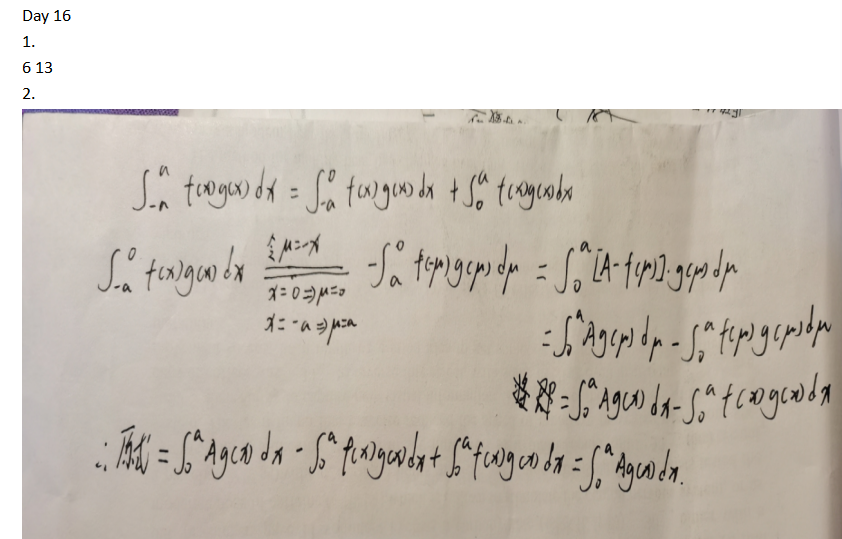 Day 16
1.
6 13
2.
∫₋ₐᵃ f(x)g(x)dx = ∫₋ₐ⁰ f(x)g(x)dx + ∫₀ᵃ f(x)g(x)dx
∫₋ₐ⁰ f(x)g(x)dx 令μ=-x x=0⇒μ=0 x=-a⇒μ=a -∫ₐ⁰ f(-μ)g(μ)dμ = ∫₀ᵃ [A-f(μ)]·g(μ)dμ
=∫₀ᵃ Ag(μ)dμ - ∫₀ᵃ f(μ)g(μ)dμ
=∫₀ᵃ Ag(x)dx - ∫₀ᵃ f(x)g(x)dx
∴原式=∫₀ᵃ Ag(x)dx - ∫₀ᵃ f(x)g(x)dx + ∫₀ᵃ f(x)g(x)dx = ∫₀ᵃ Ag(x)dx.